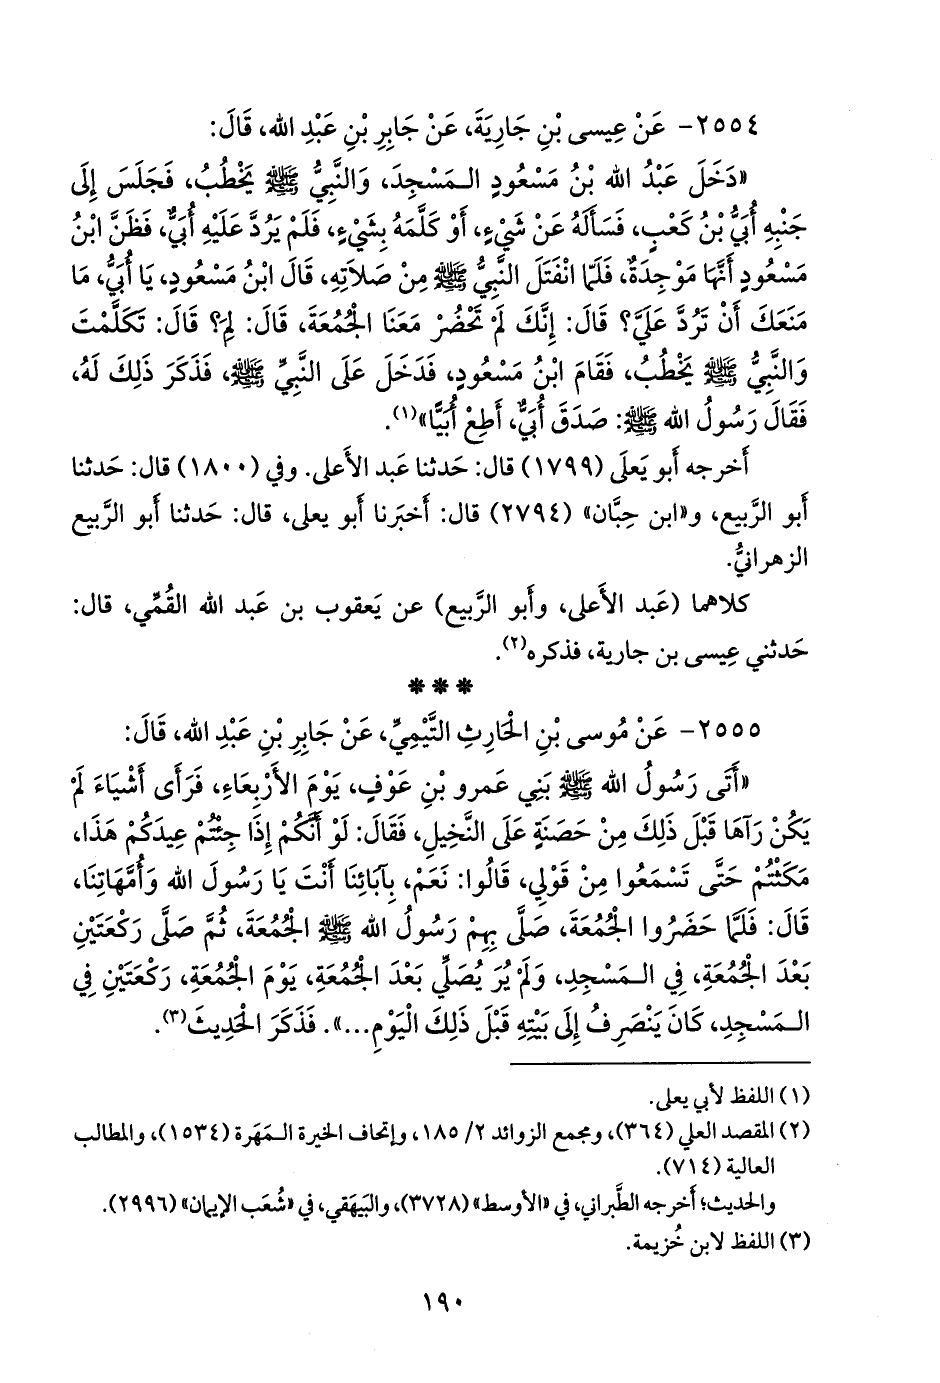 ٢٥٥٤- عَنْ عِيسى بْنِ جَارِيَةَ، عَنْ جَابِرِ بْنِ عَبْدِ الله، قَالَ:
«دَخَلَ عَبْدُ الله بْنُ مَسْعُودٍ الـمَسْجِدَ، وَالنَّبِيُّ ﷺ يَخْطُبُ، فَجَلَسَ إِلَى
جَنْبِهِ أُبَيُّ بْنُ كَعْبٍ، فَسَأَلَهُ عَنْ شَيْءٍ، أَوْ كَلَّمَهُ بِشَيْءٍ، فَلَمْ يَرُدَّ عَلَيْهِ أُبَيٌّ، فَظَنَّ ابْنُ
مَسْعُودٍ أَنَّهَا مَوْجِدَةٌ، فَلَمَّا انْفَتَلَ النَّبِيُّ ﷺ مِنْ صَلَاتِهِ، قَالَ ابْنُ مَسْعُودٍ، يَا أُبَيُّ، مَا
مَنَعَكَ أَنْ تَرُدَّ عَلَيَّ؟ قَالَ: إِنَّكَ لَمْ تَحْضُرْ مَعَنَا الْجُمُعَةَ، قَالَ: لِمَ؟ قَالَ: تَكَلَّمْتَ
وَالنَّبِيُّ ﷺ يَخْطُبُ، فَقَامَ ابْنُ مَسْعُودٍ، فَدَخَلَ عَلَى النَّبِيِّ ﷺ، فَذَكَرَ ذَلِكَ لَهُ،
فَقَالَ رَسُولُ الله ﷺ: صَدَقَ أُبَيٌّ، أَطِعْ أُبَيًّا»(١).
أَخرجه أَبو يَعلَى (١٧٩٩) قال: حَدثنا عَبد الأَعلى. وفي (١٨٠٠) قال: حَدثنا
أَبو الرَّبيع، و«ابن حِبَّان» (٢٧٩٤) قال: أَخبَرنا أَبو يعلى، قال: حَدثنا أَبو الرَّبيع
الزهرانيُّ.
كلاهما (عَبد الأَعلى، وأَبو الرَّبيع) عن يَعقوب بن عَبد الله القُمِّي، قال:
حَدثني عِيسى بن جارية، فذكره(٢).
***
٢٥٥٥- عَنْ مُوسى بْنِ الْحَارِثِ التَّيْمِيِّ، عَنْ جَابِرِ بْنِ عَبْدِ الله، قَالَ:
«أَتَى رَسُولُ الله ﷺ بَنِي عَمرو بْنِ عَوْفٍ، يَوْمَ الأَرْبِعَاءِ، فَرَأَى أَشْيَاءَ لَمْ
يَكُنْ رَآهَا قَبْلَ ذَلِكَ مِنْ حَصَنَةٍ عَلَى النَّخِيلِ، فَقَالَ: لَوْ أَنَّكُمْ إِذَا جِئْتُمْ عِيدَكُمْ هَذَا،
مَكَثْتُمْ حَتَّى تَسْمَعُوا مِنْ قَوْلِي، قَالُوا: نَعَمْ، بِآبَائِنَا أَنْتَ يَا رَسُولَ الله وَأُمَّهَاتِنَا،
قَالَ: فَلَمَّا حَضَرُوا الْجُمُعَةَ، صَلَّى بِهِمْ رَسُولُ الله ﷺ الْجُمُعَةَ، ثُمَّ صَلَّى رَكْعَتَيْنِ
بَعْدَ الْجُمُعَةِ، فِي الـمَسْجِدِ، وَلَمْ يُرَ يُصَلِّي بَعْدَ الْجُمُعَةِ، يَوْمَ الْجُمُعَةِ، رَكْعَتَيْنِ فِي
الـمَسْجِدِ، كَانَ يَنْصَرِفُ إِلَى بَيْتِهِ قَبْلَ ذَلِكَ الْيَوْمِ...». فَذَكَرَ الْحَدِيثَ(٣).
(١) اللفظ لأبي يعلى.
(٢) المقصد العلي (٣٦٤)، ومجمع الزوائد ٢/ ١٨٥، وإتحاف الخيرة الـمَهَرة (١٥٣٤)، والمطالب
العالية (٧١٤).
والحديث؛ أَخرجه الطَّبراني، في «الأوسط» (٣٧٢٨)، والبَيهَقي، في «شُعَب الإيمان» (٢٩٩٦).
(٣) اللفظ لابن خُزيمة.
١٩٠